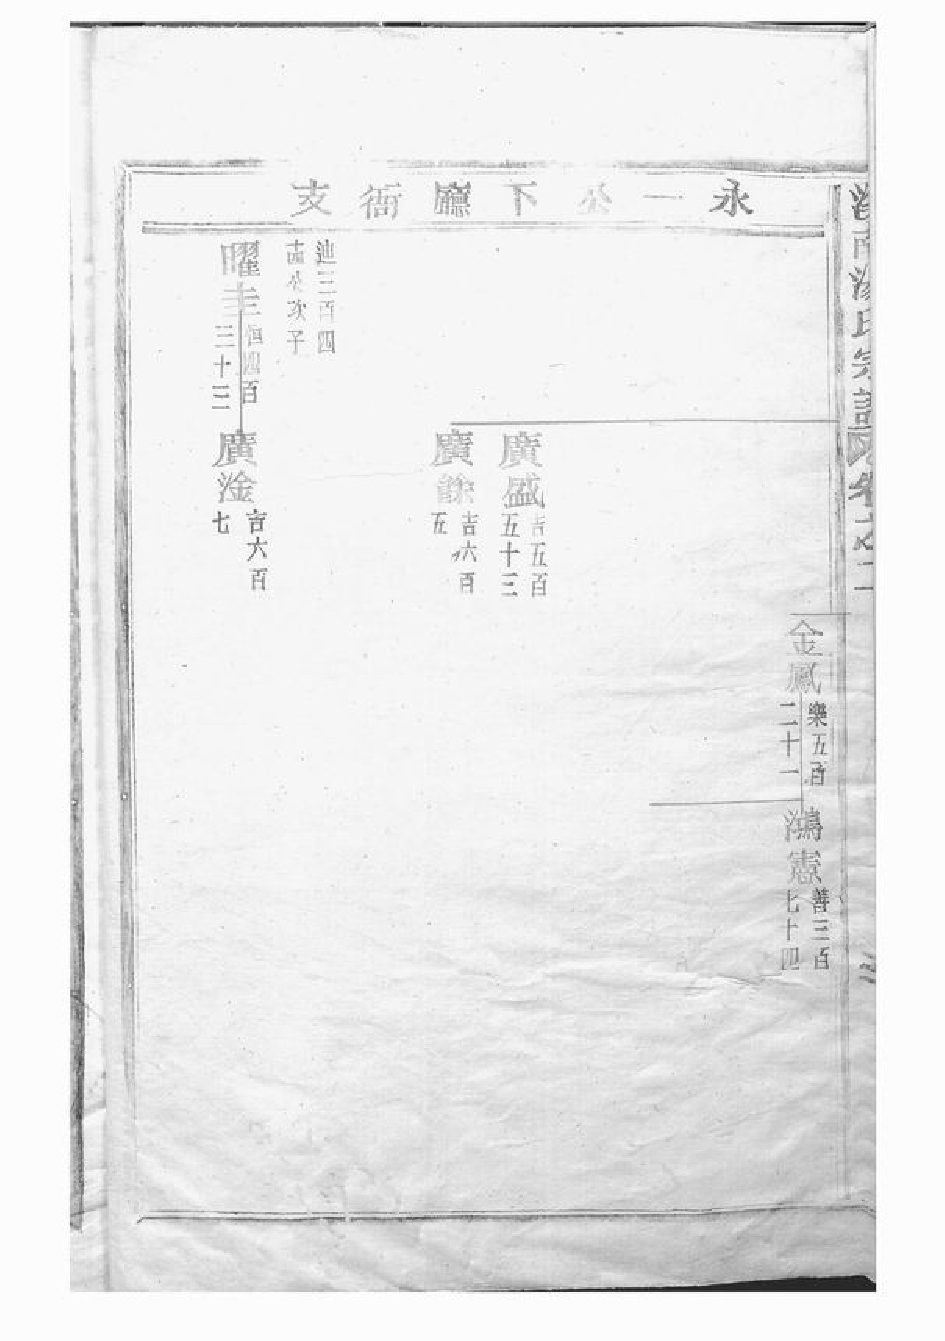 永一公下廳衙支
金鳳
樂五百
二十一
鴻憲
善三百
七十四
廣盛
吉五百
五十三
廣餘
吉六百
五
迪三百四
十四公次子
曜圭
恒四百
三十三
廣淦
吉六百
七